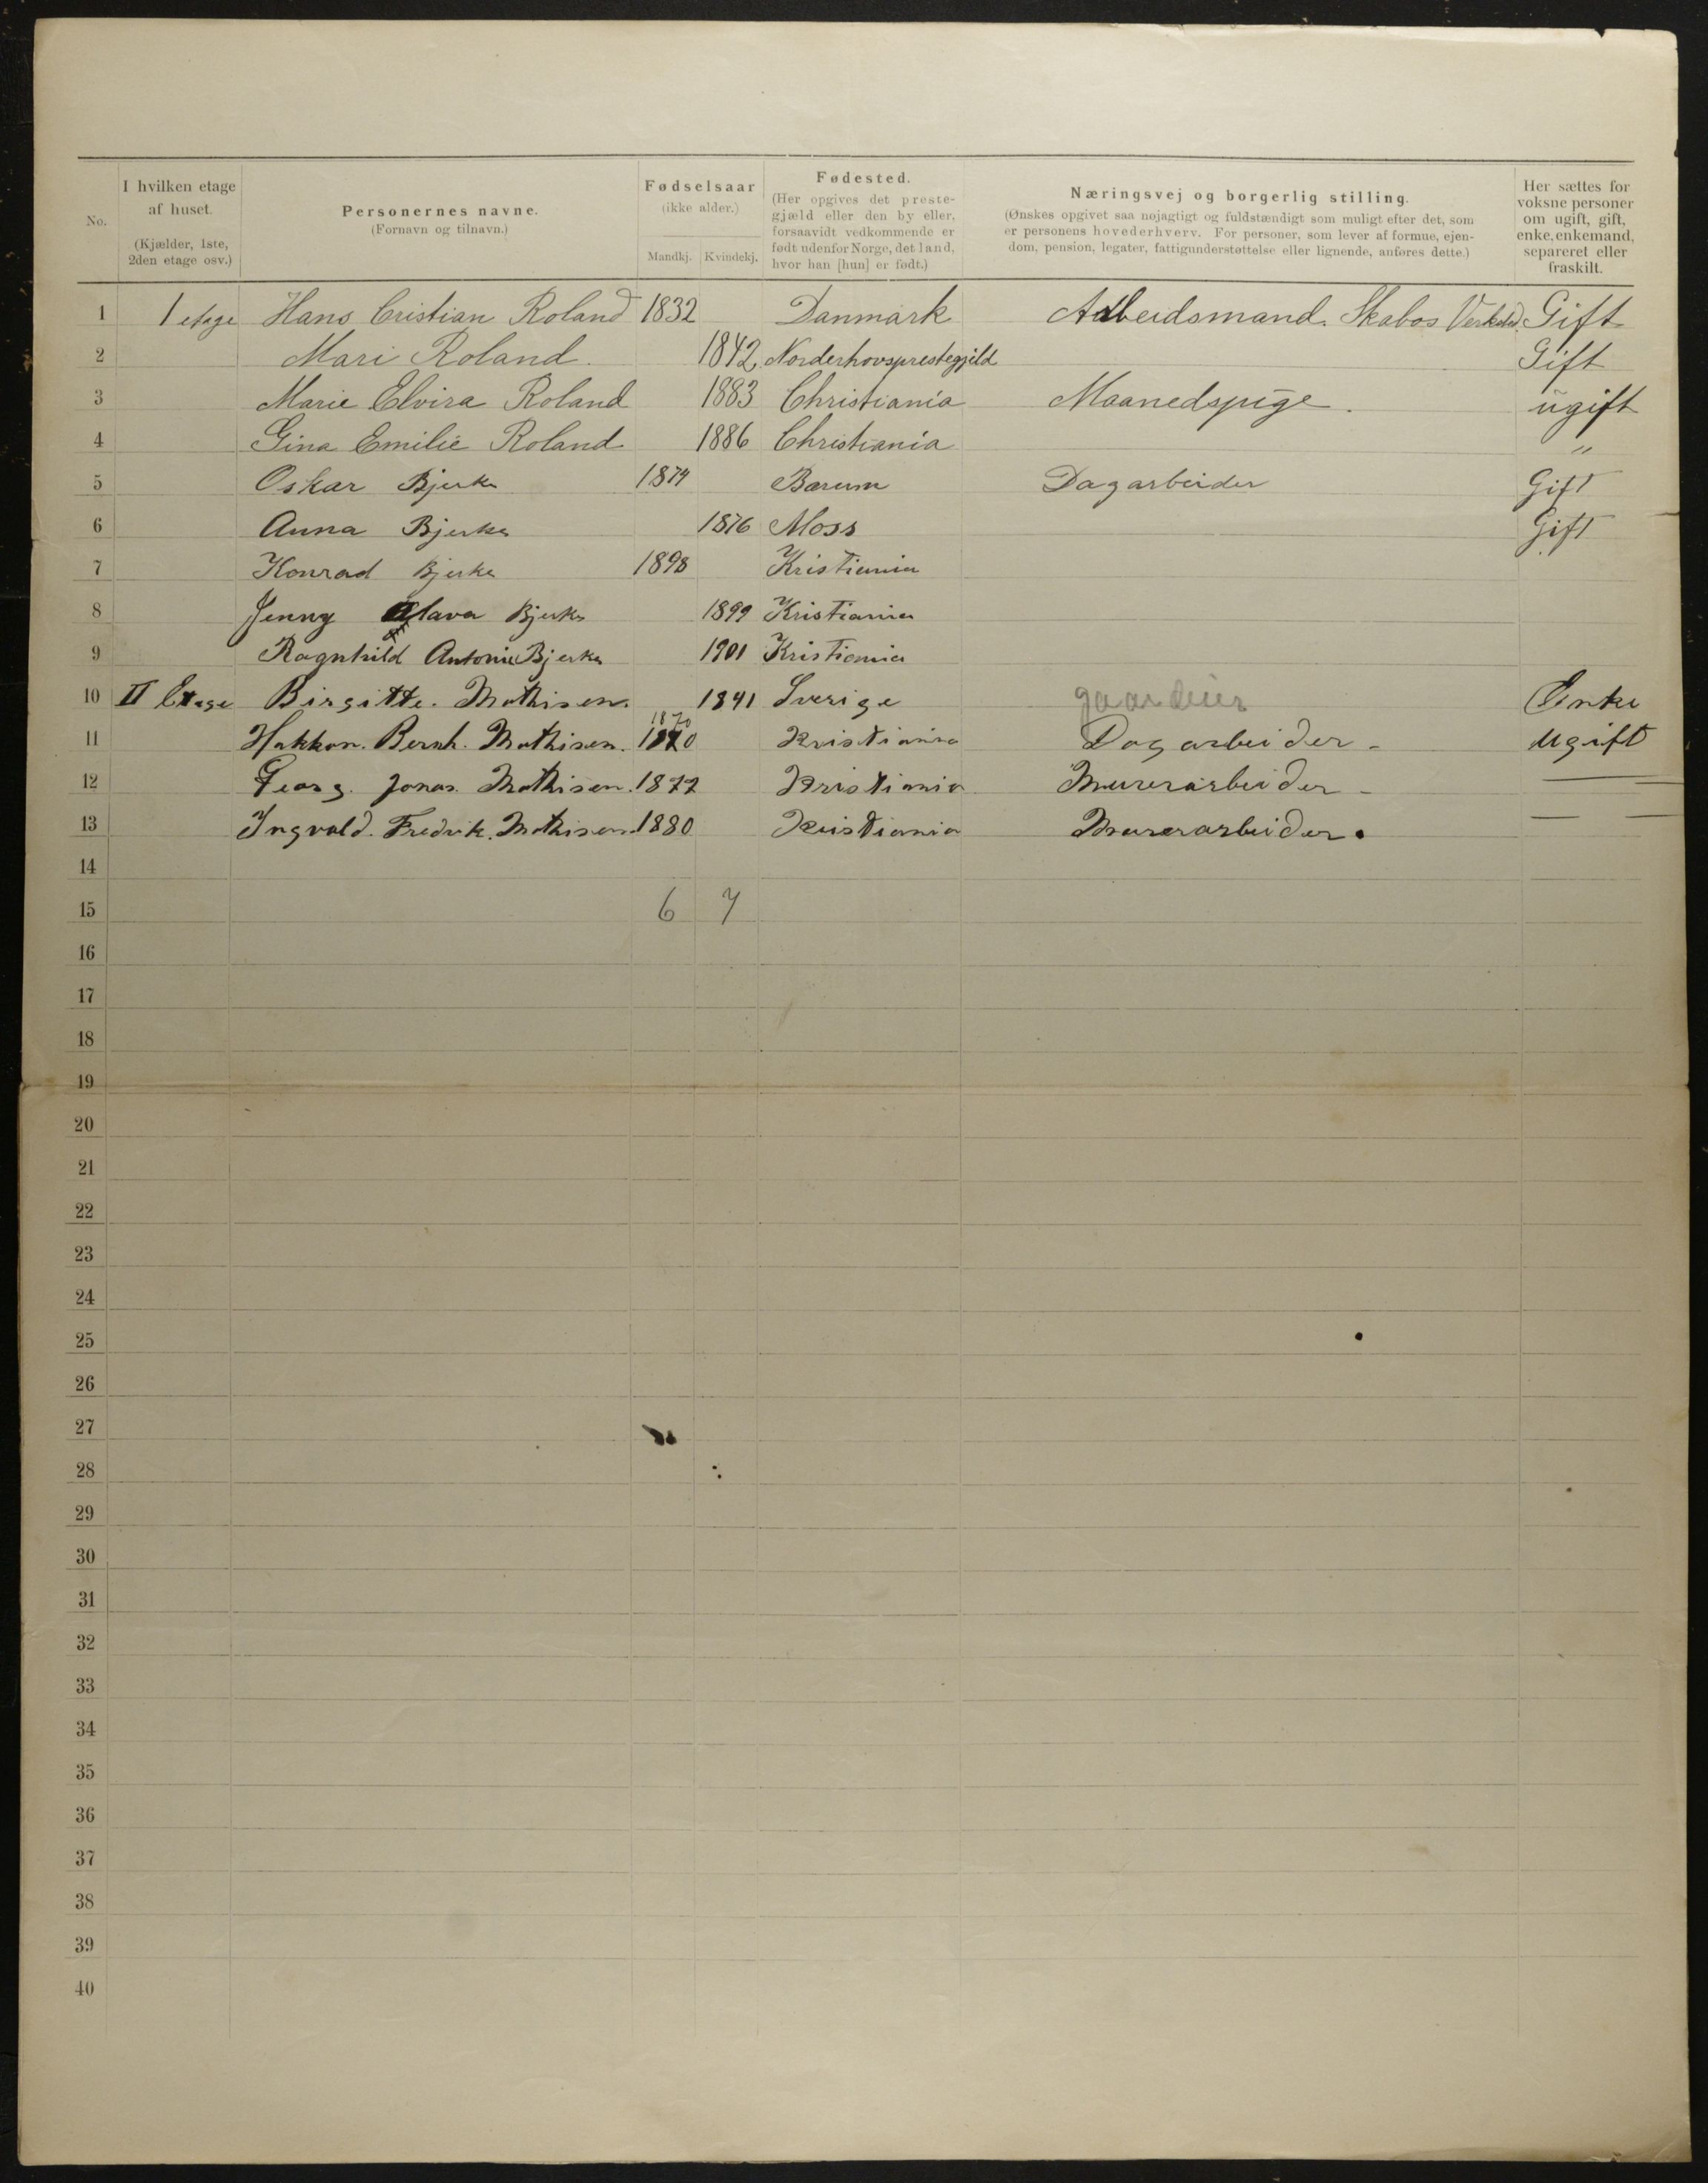 No.
I hvilken etage
af huset.
(Kjælder, 1ste,
2den etage osv.)
Personernes navne.
(Fornavn og tilnavn.)
Fødselsaar
(ikke alder.)
Mandkj. Kvindekj.
Fødested.
(Her opgives det preste-
gjæld eller den by eller,
forsaavidt vedkommende er
født udenfor Norge, det land,
hvor han [hun] er født.)
Næringsvej og borgerlig stilling.
(Ønskes opgivet saa nøjagtigt og fuldstændigt som muligt efter det, som
er personens hovederhverv. For personer, som lever af formue, ejen-
dom, pension, legater, fattigunderstøttelse eller lignende, anføres dette.)
Her sættes for
voksne personer
om ugift, gift,
enke, enkemand,
separeret eller
fraskilt.
1 1 etage Hans Cristian Roland 1832 Danmark Arbeidsmand. Skabos Gift
2 Mari Roland. 1842 Norderhovsprestegjeld Gift
3 Marie Elvira Roland 1883 Christiania Maanedspige. ugift
4 Gina Emilie Roland 1886 Christiania "
5 Oskar Bjerke 1874 Bærum Dagarbeider Gift
6 Anna Bjerke 1876 Moss Gift
7 Konrad Bjerke 1898 Kristiania
8 Jenny Bjerke 1899 Kristiania
9 Ragnhild Antonie Bjerke 1901 Kristiania
10 II Etage Birgitte. Mathisen. 1841 Sverige gaardeier Enke
1870
11 Hakkon. Bernh. Mathisen. 1870 Kristiania Dagarbeider - ugift
12 Georg. Jonas. Mathisen. 1877 Kristiania Murerarbeider - —
13 Ingvald. Fredrik. Mathisen 1880 Kristiania Murerarbeider. — —
14
15 6 7
16
17
18
19
20
21
22
23
24
25
26
27
28
29
30
31
32
33
34
35
36
37
38
39
40